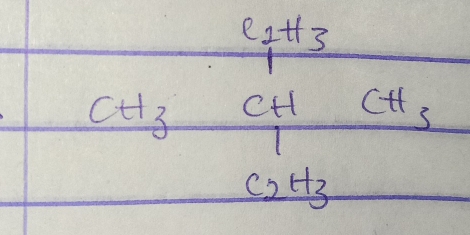 C2H3
CH3 CH CH3
C2H3